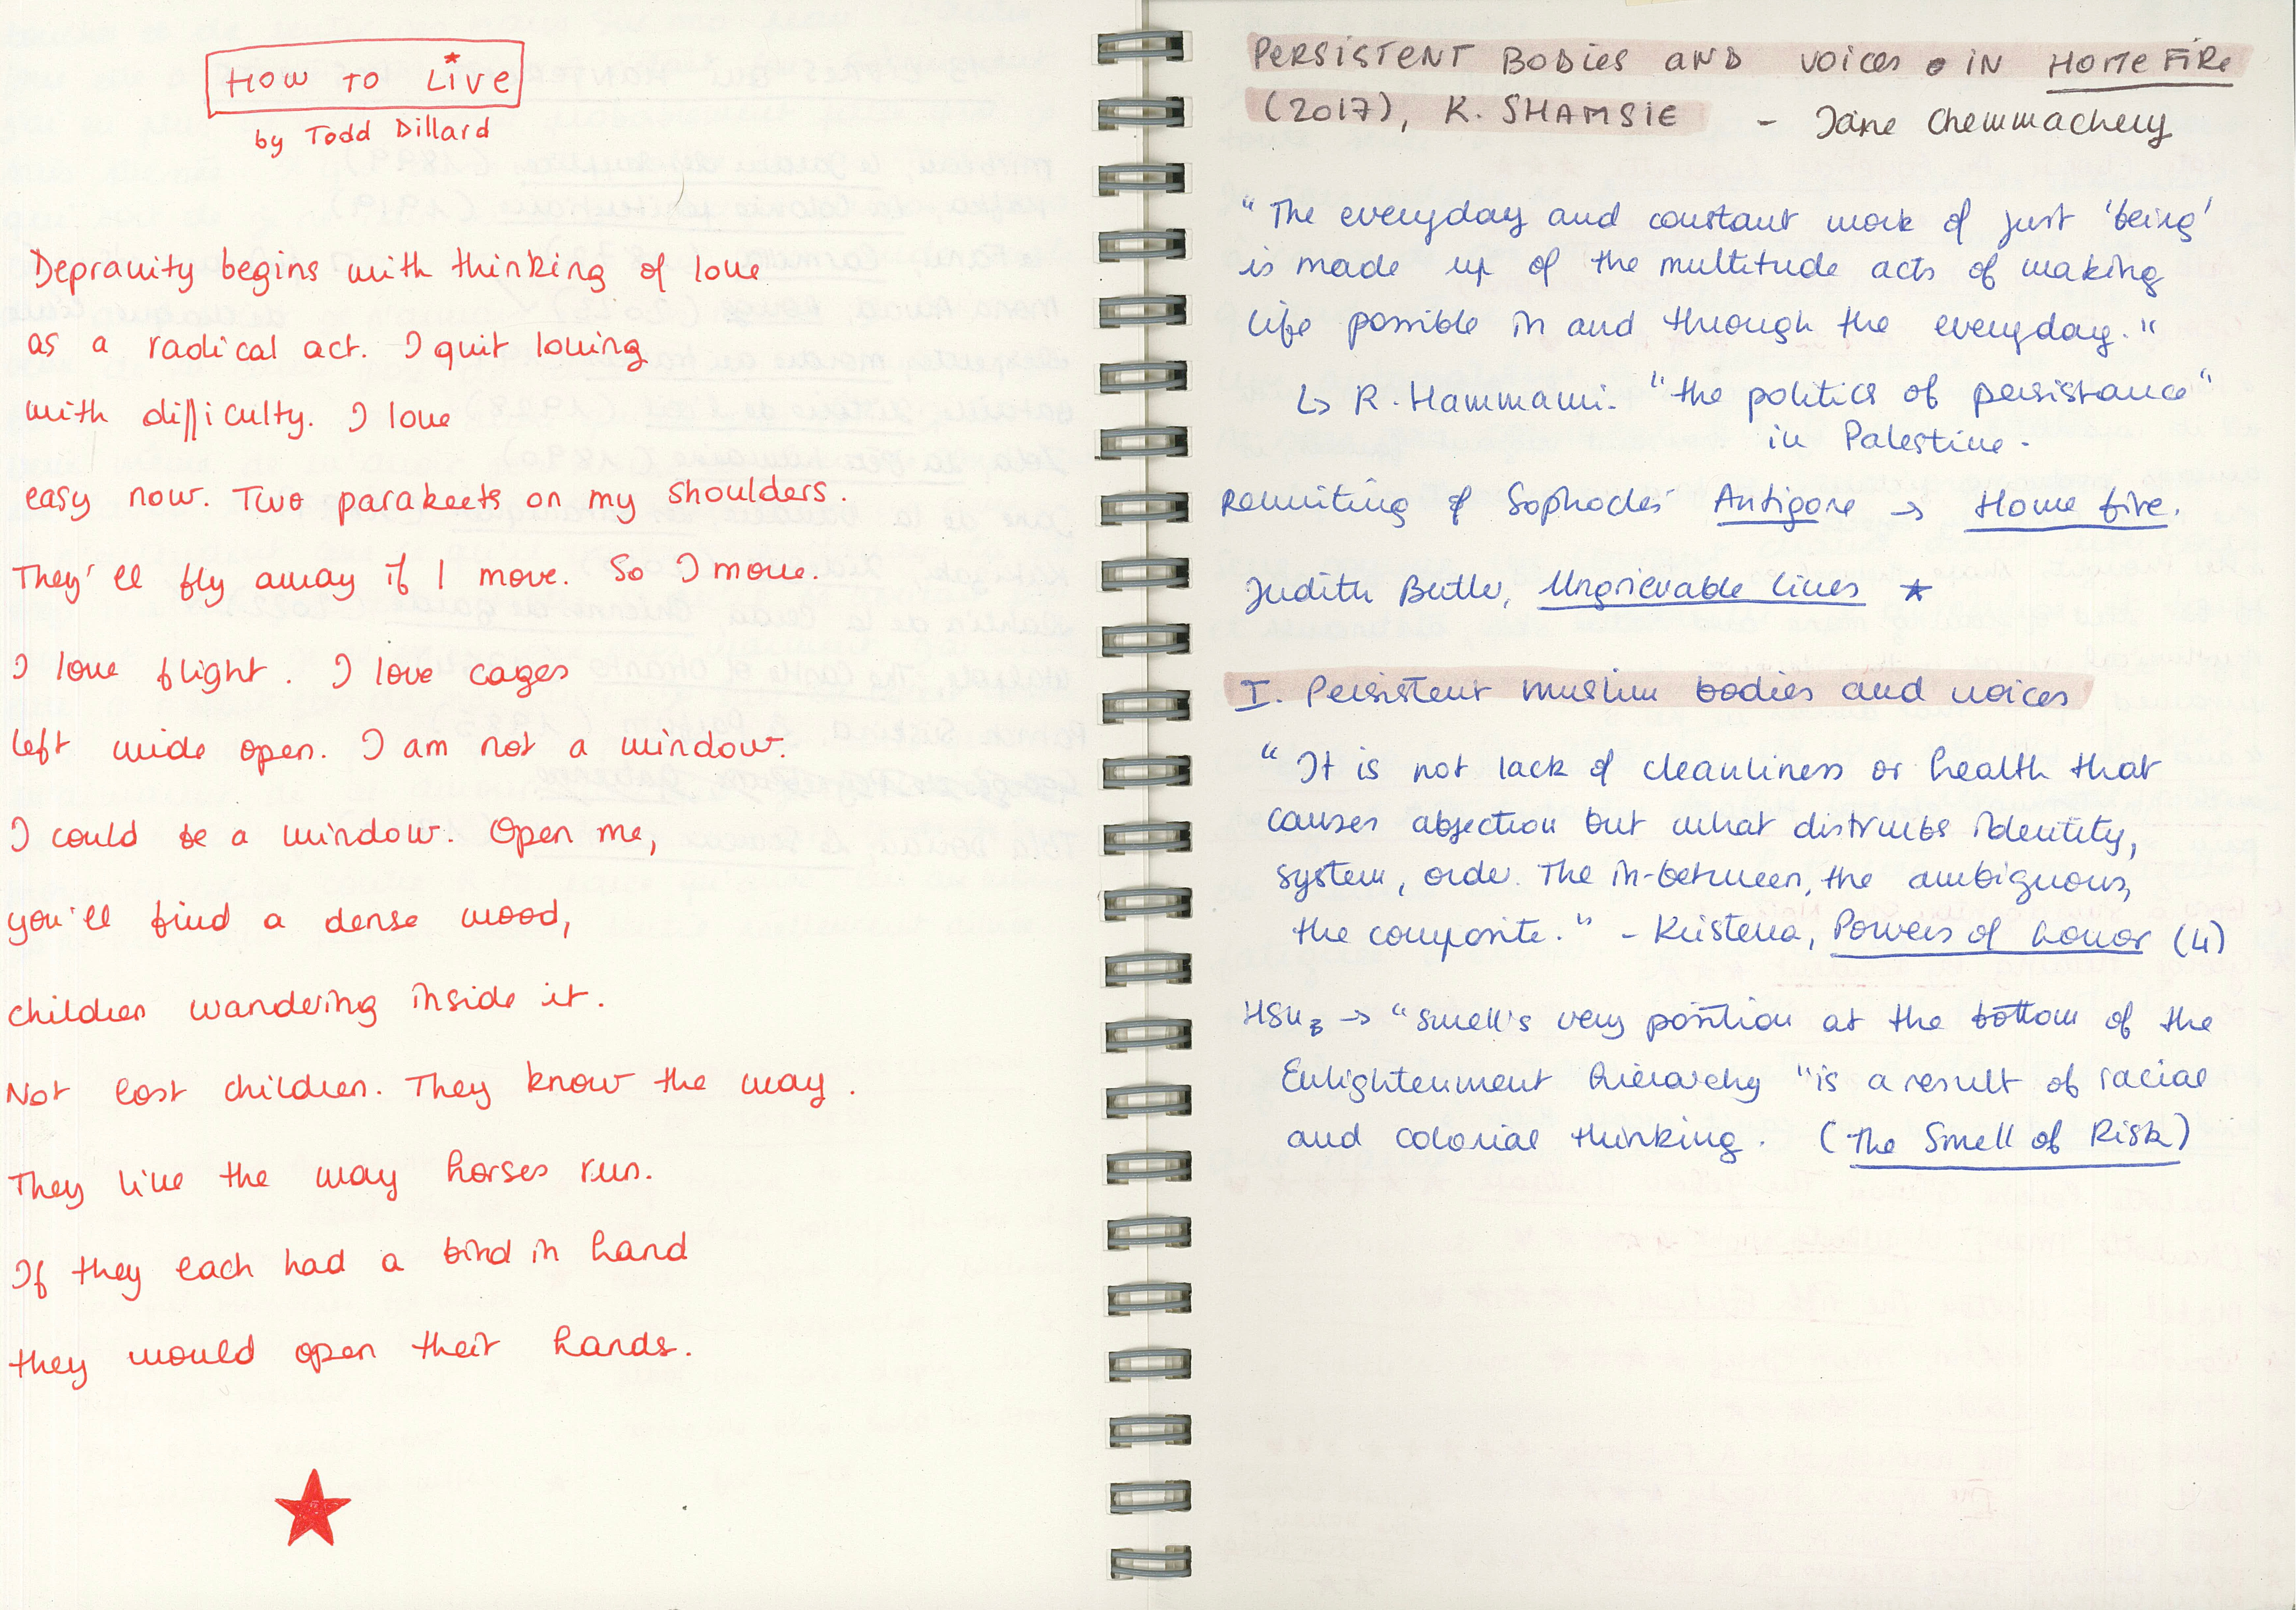 HOW TO LIVE
by Todd Dillard
Depravity begins with thinking of love
as a radical act. I quit loving
with difficulty. I love
easy now. Two parakeets on my shoulders.
They'll fly away if I move. So I move.
I love flight. I love cages
left wide open. I am not a window.
I could be a window. Open me,
you'll find a dense wood,
children wandering inside it.
Not lost children. They know the way.
They live the way horses run.
If they each had a bird in hand
they would open their hands.
PERSISTENT BODIES AND VOICES IN HOME FIRE
(2017), K. SHAMSIE - Jane Chemmachery
"The everyday and constant work of just 'being'
is made up of the multitude acts of making
life possible in and through the everyday."
↳ R. Hammami. "the politics of persistance"
in Palestine.
Rewriting of Sophocles' Antigone → Home fire.
Judith Butler, Ungrievable lives ★
I. Persistent muslim bodies and voices
"It is not lack of cleanliness or health that
causes abjection but what distrubs identity,
system, order. The in-between, the ambiguous,
the composite." - Kristeva, Powers of horror (4)
HSU → "smell's very position at the bottom of the
Enlightenment hierarchy "is a result of racial
and colonial thinking. (The Smell of Risk)